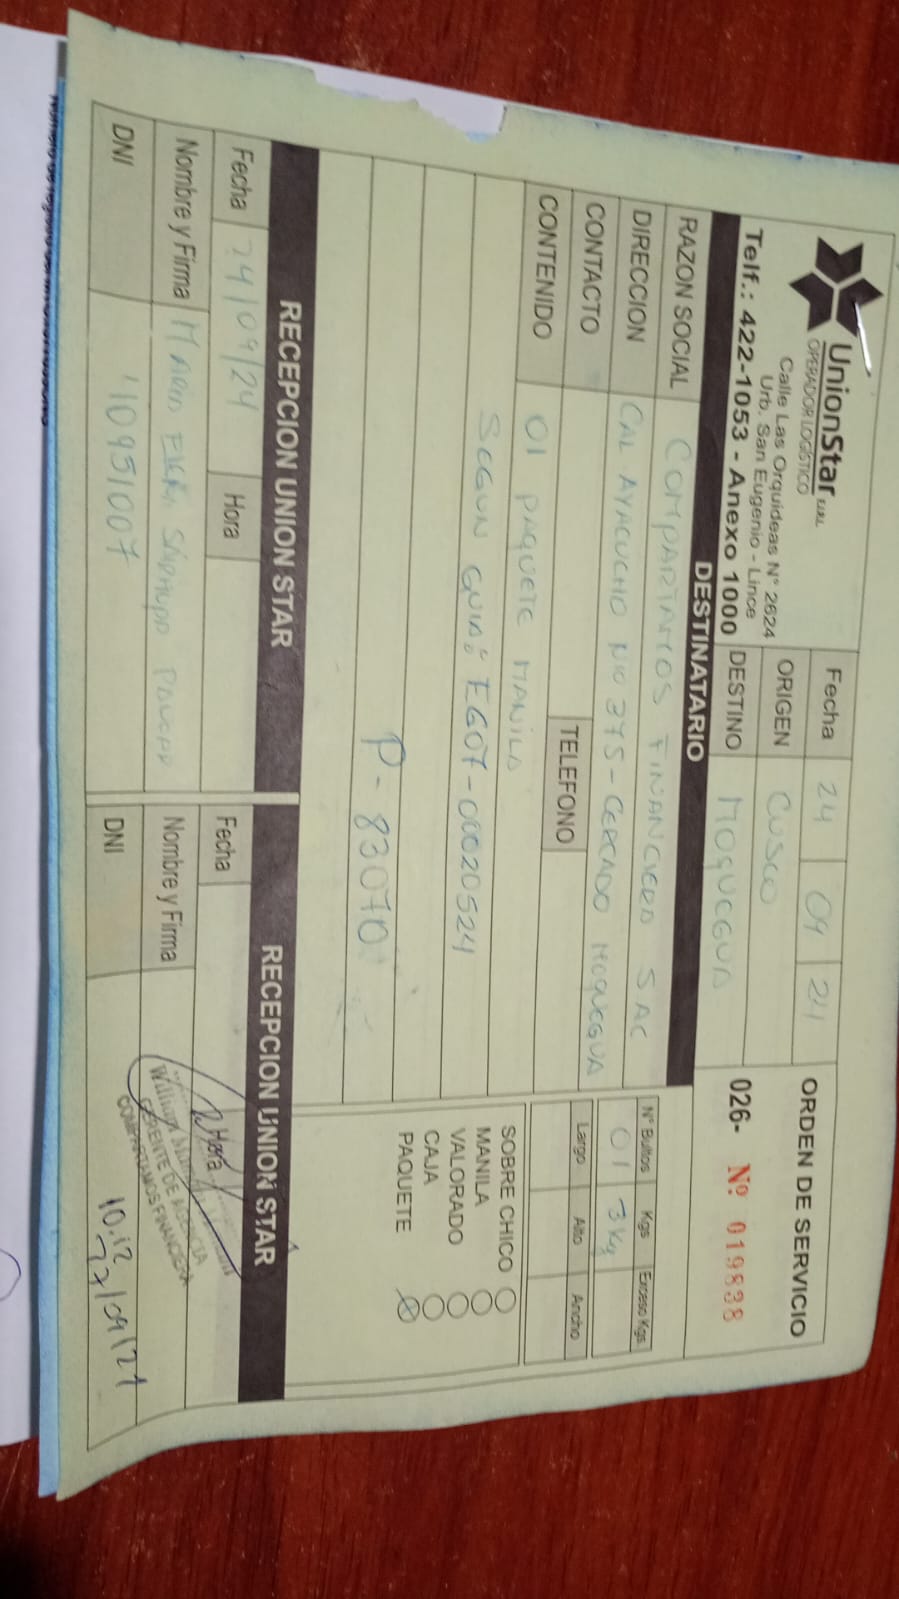 UnionStar E.I.R.L.
OPERADOR LOGÍSTICO
Calle Las Orquideas N° 2624
Urb. San Eugenio - Lince
Telf.: 422-1053 - Anexo 1000
Fecha 24 09 24
ORIGEN CUSCO
DESTINO MOQUEGUA
ORDEN DE SERVICIO
026- Nº 019838
DESTINATARIO
RAZON SOCIAL COMPARTAMOS FINANCIERA SAC
DIRECCION CAL AYACUCHO NRO 375-CERCADO MOQUEGUA
CONTACTO TELEFONO
CONTENIDO 01 PAQUETE MANILA
SEGUN GUIA: EG07-00020524
P-83070
N° Bultos Kgs Exceso Kgs.
01 3Kg
Largo Alto Ancho
SOBRE CHICO
MANILA
VALORADO
CAJA
PAQUETE
RECEPCION UNION STAR
Fecha 24/09/24 Hora
Nombre y Firma MARIO SAHUD PAUCAR
DNI 10951007
RECEPCION UNION STAR
Fecha Hora
Nombre y Firma
William
GERENTE DE AGENCIA
COMPARTAMOS FINANCIERA
DNI
10:12
27/09/24